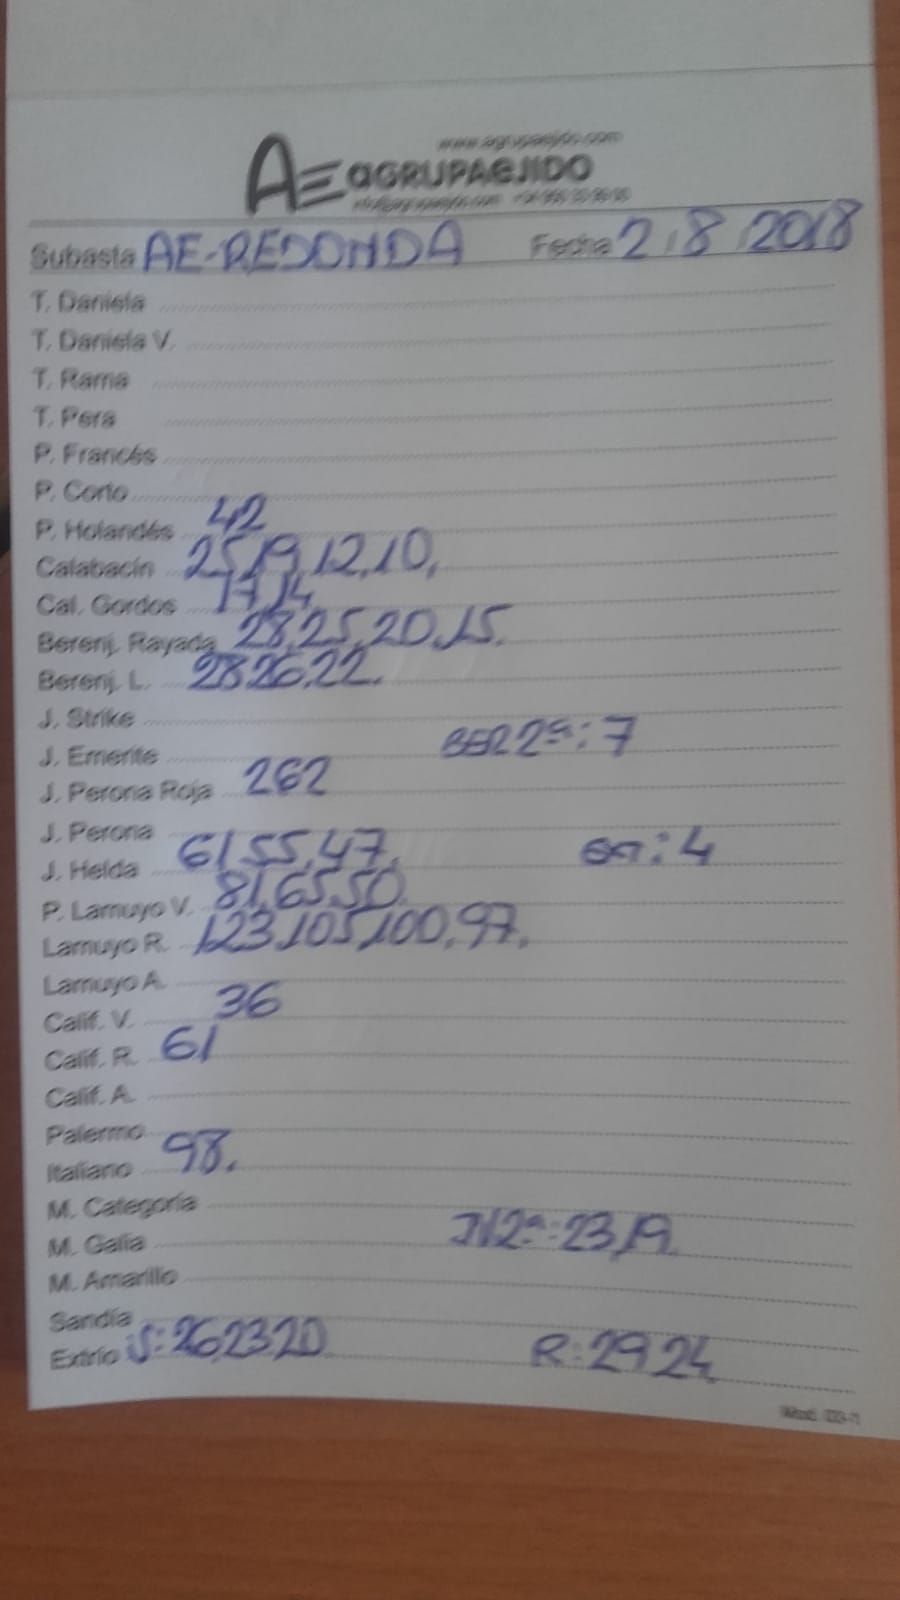 www.agrupaejido.com
AE AGRUPAEJIDO
Subasta AE-REDONDA Fecha 2/8/2018
T. Daniela
T. Daniela V.
T. Rama
T. Pera
P. Francés
P. Corto
P. Holandés 42
Calabacín 25,19,12,10,
Cal. Gordos 17,14
Berenj. Rayada 28,25,20,15.
Berenj. L. 28,26,22.
J. Strike
J. Emerite BER 2ª: 7
J. Perona Roja 262
J. Perona
J. Helda 61,55,47. : 4
P. Lamuyo V. 81,65,50.
Lamuyo R. 123,105,100,97.
Lamuyo A.
Calif. V. 36
Calif. R. 61
Calif. A.
Palermo
Italiano 98.
M. Categoría
M. Galia 2ª: 23,19.
M. Amarillo
Sandía
Extrío S: 26,23,20 R: 29,24